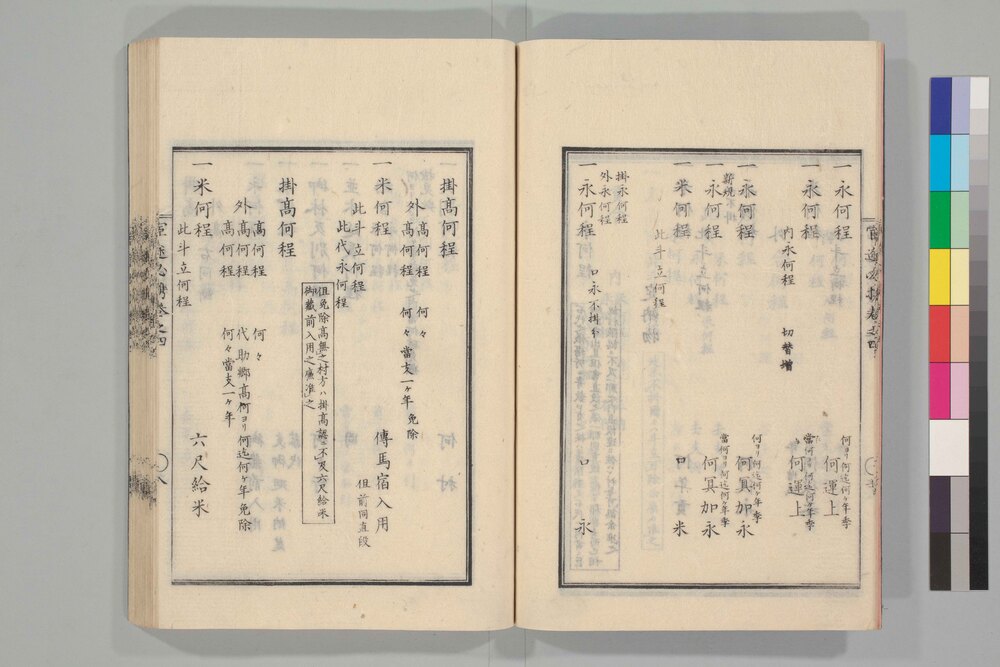 一永何程 何ヨリ何迄何ヶ年季 何運上
一永何程 當何ヨリ何迄何ヶ年季 何運上
内永何程 切替増
一永何程 何ヨリ何迄何ヶ年季 何冥加永
薪焼
一永何程 當何ヨリ何迄何ヶ年季 何冥加永
一米何程 口米
此斗立何程
掛永何程
外永何程
一永何程 口永不掛分 口永
掛髙何程
外髙何程 何々
髙何程 何々當支一ヶ年免除
一米何程 傳馬宿入用
此斗立何程 但前同直段
此代永何程
但免除高無之村方ハ掛高認ニ不及六尺給米
御藏前入用之廉准之
掛髙何程
髙何程 何々
外髙何程 代助郷髙何ヨリ何迄何ヶ年免除
髙何程 何々當支一ヶ年
一米何程 六尺給米
此斗立何程